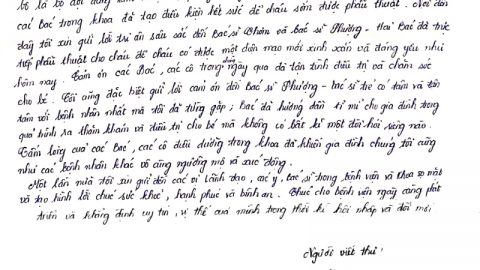 các Bác trong khoa đã tạo điều kiện hết sức để cháu sớm được phẫu thuật. Nơi đây
đây tôi xin gửi lời tri ân sâu sắc đến Bác sĩ Nhân và bác sĩ Phượng - Hai Bác đã trực
tiếp phẫu thuật cho cháu để cháu có được một diện mạo mới xinh xắn và đáng yêu như
hôm nay. Cảm ơn các Bác, các cô trong ngày qua đã tận tình điều trị và chăm sóc
cho bé. Tôi cũng đặc biệt gửi lời cảm ơn đến Bác sĩ Phượng - bác sĩ trẻ có tâm và tôn
tâm với bệnh nhân nhất mà tôi đã từng gặp; Bác đã hướng dẫn tỉ mỉ cho gia đình trong
quá trình ra thăm khám và điều trị cho bé mà không có bất kì một đòi hỏi riêng nào.
Tấm lòng của các Bác, các cô điều dưỡng trong khoa đã khiến gia đình chúng tôi cũng
như các bệnh nhân khác vô cùng ngưỡng mộ và xúc động.
Một lần nữa tôi xin gửi đến các vị lãnh đạo, các y, bác sĩ trong bệnh viện và khoa
và tạo hình lời chúc sức khỏe, hạnh phúc và bình an. Chúc cho bệnh viện ngày càng phát
triển và khẳng định uy tín, vị thế của mình trong thời kì hội nhập và đổi mới
Người viết thư